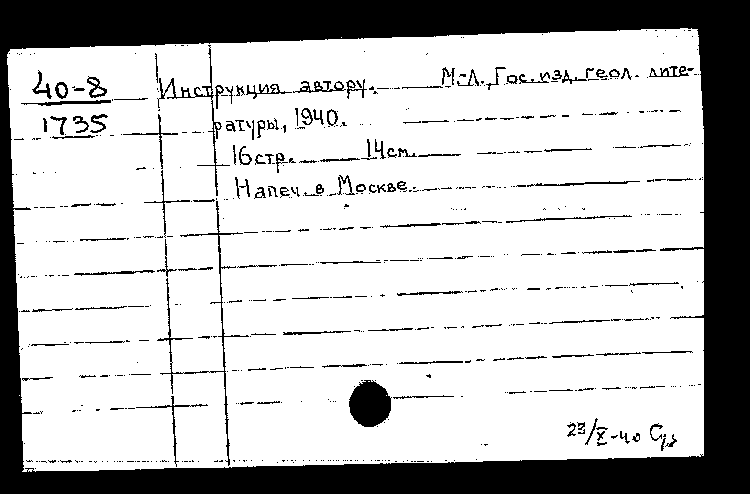 40-8 Инструкция автору. М.-Л., Гос. изд. геол. лите-
1735 ратуры, 1940.
16 стр. 14 см.
Напеч. в Москве.
23/X-40